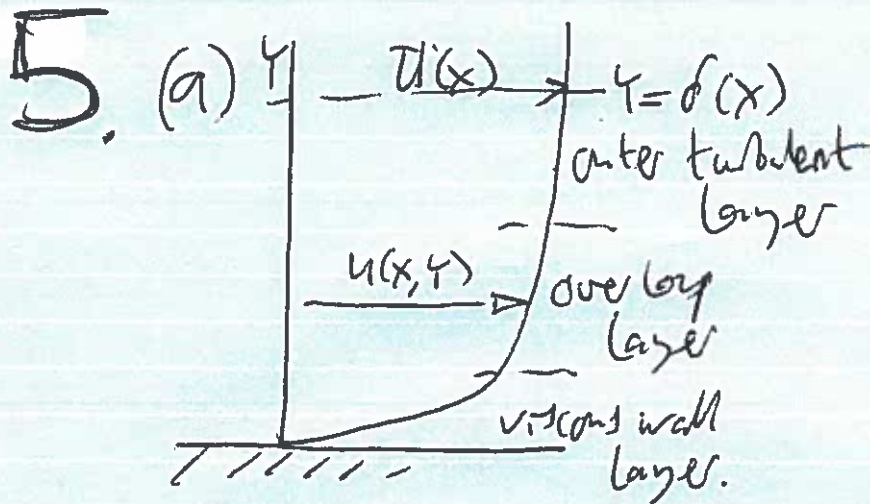 5. (a) Y U(x) Y = δ(x)
outer turbulent
layer
u(x,Y) overlap
layer
viscous wall
layer.